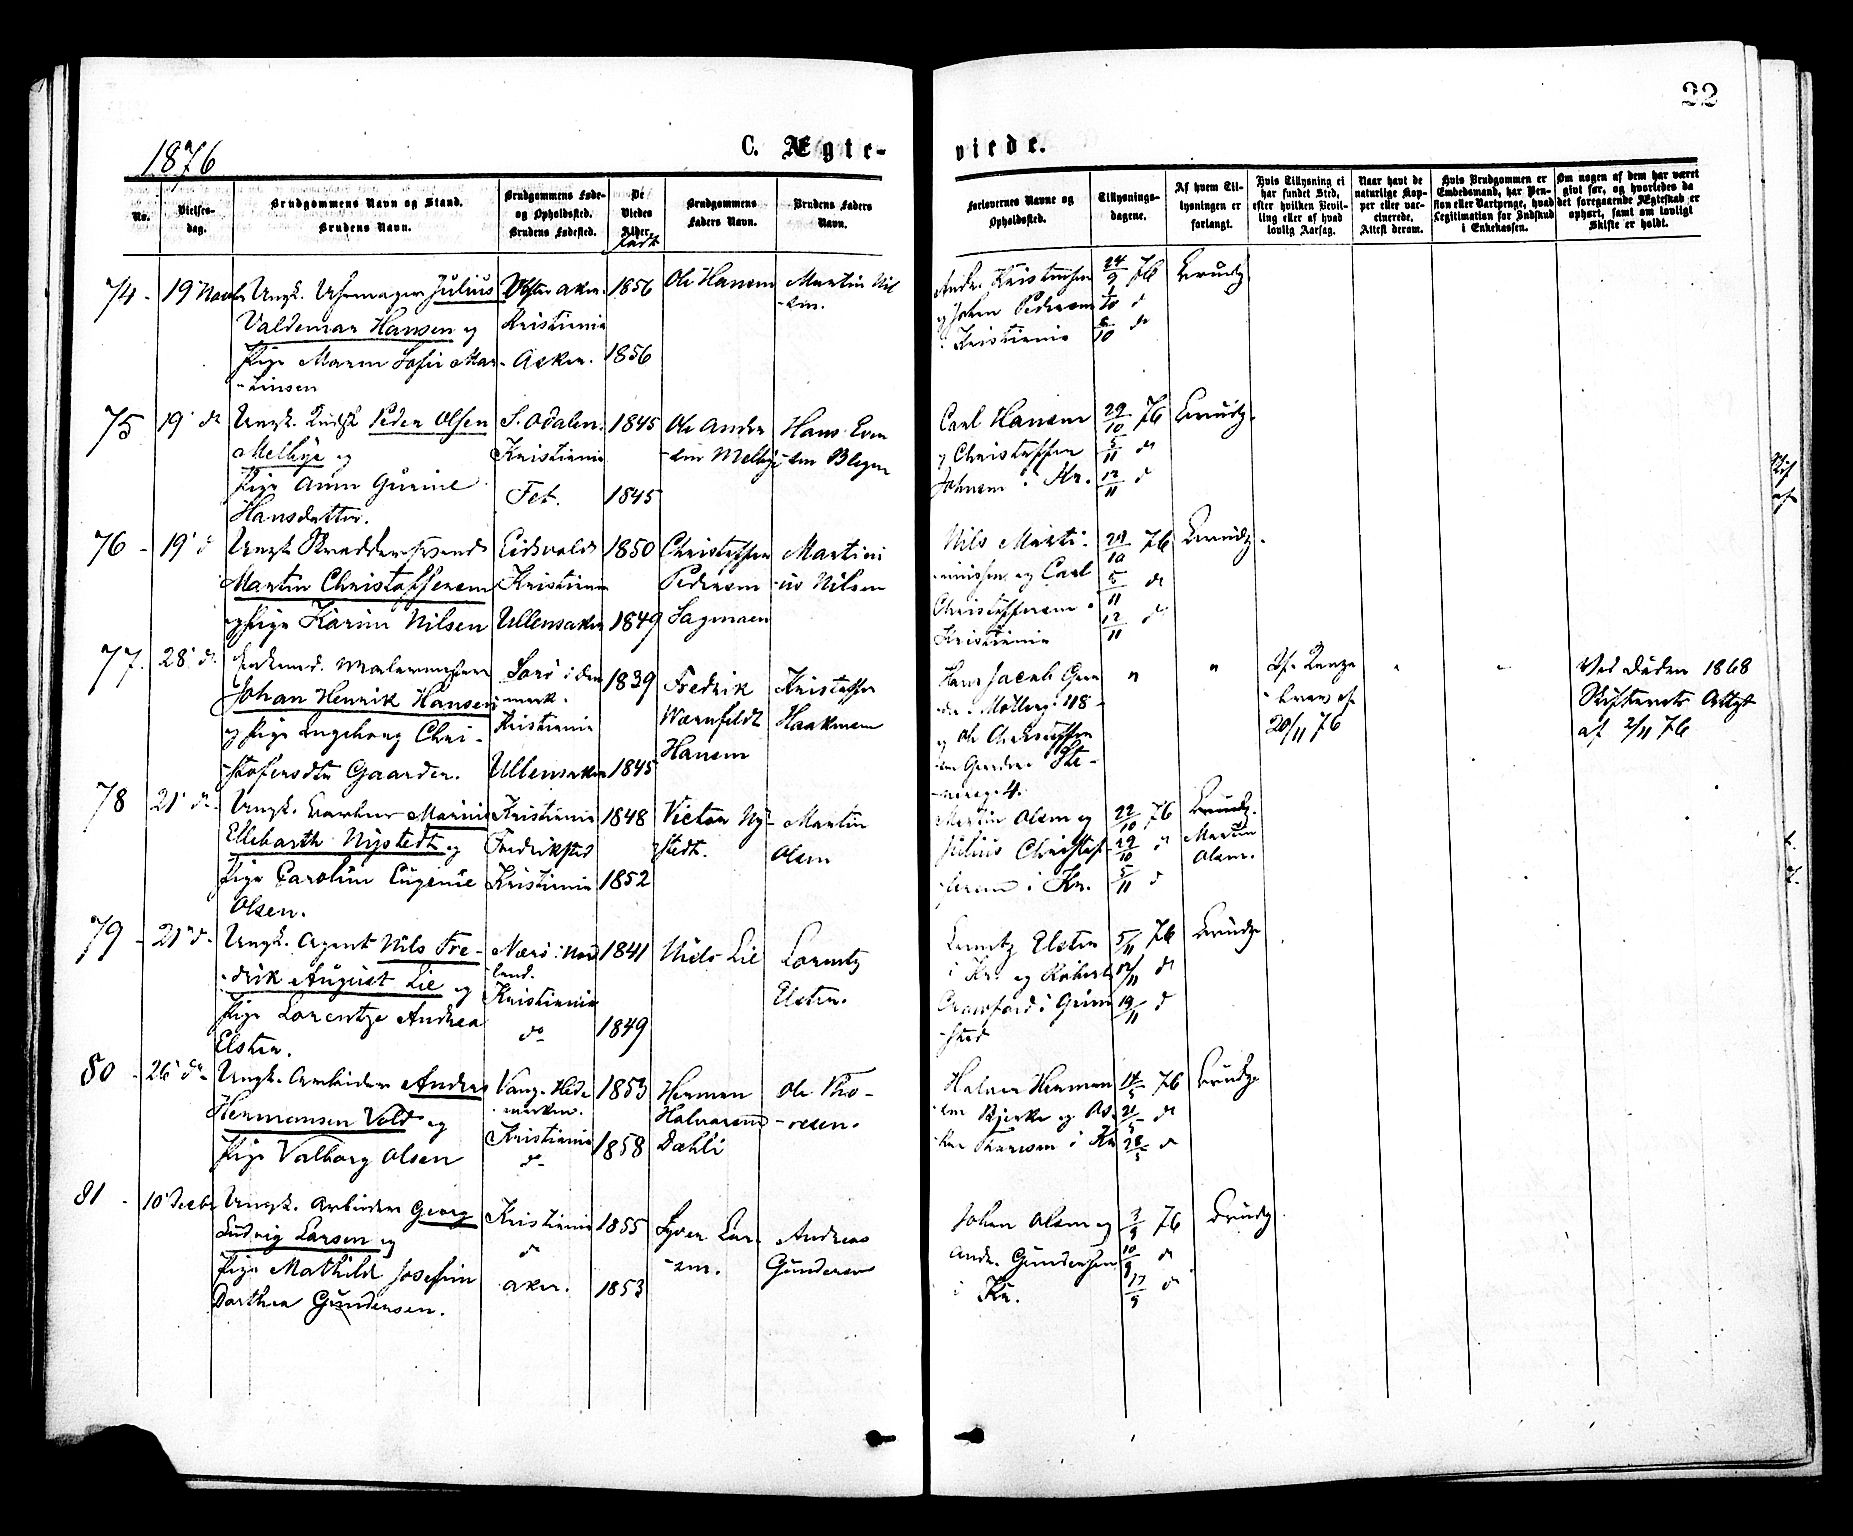 22
1876
C. Ægte-
viede.
No.
Vielses-
dag.
Brudgommens Navn og Stand.
Brudens Navn.
Brudgommens Føde-
og Opholdsted.
Brudens Fødested.
De
Viedes
Alder.
født
Brudgommens
Faders Navn.
Brudens Faders
Navn.
Forlovernes Navne og
Opholdsted.
Tillysnings-
dagene.
Af hvem Til-
lysningen er
forlangt.
Hvis Tillysning ei
har fundet Sted,
efter hvilken Bevil-
ling eller af hvad
lovlig Aarsag.
Naar havt de
naturlige Kop-
per eller vac-
cinerede.
Attest derom.
Hvis Brudgommen er
Embedsmand, har Pen-
sion eller Vartpenge, hvad
Legitimation for Indskud
i Enkekassen.
Om nogen af dem har været
gift før, og hvorledes da
det foregaaende Ægteskab er
ophørt, samt om lovligt
Skifte er holdt.
74 - 19 Novbr Ungk. Uhrmager Julius
Valdemar Hansen og
Pige Maren Sofie Mar-
tinsen
Vestre Aker.
Kristiania
Asker.
1856
1856
Ole Hansen
Martin Nil
sen.
Andr. Kristensen
og Johan Pedersen
i Kristiania
24/9 76
1/10 do
8/10 do
Brudg.
75 19 do Ungk. Peder Olsen
Melbye og
Pige Anne Gurine
Hansdatter.
S. Odalen.
Kristiania
Fet.
1845
1845
Ole Ander
sen Melbye
Hans Even
sen
Carl Hansen
og Christoffer
Johnsen i Kr.
29/10 76
5/11 do
12/11 do
Brudg.
76 - 19 do Ungk. Skræddersvend
Martin Christoffersen
og Pige Karen Nilsen
Eidsvold
Kristiania
Ullensaker
1850
1849
Christoffer
Pedersen
Sagmoen
Martini
us Nilsen
Nils Marti-
niussen og Carl
Christoffersen i
Kristiania
29/10 76
5/11 do
12/11 do
Brudg.
77. 28 do. Enkemd. Malermester
Johan Henrik Hansen
og Pige Ingeborg Chri-
stofersdtr Gaarder.
Sorø i Dan
mark.
Kristiania
Ullensaker
1839
1845
Fredrik
Warnfeldt
Hansen
Kristoffer
Haakensen
Hans Jacob
Møllerg. 48
og Ole Christoffer
sen Gaarder
4.
"
"
brev af
20/11 76
"
"
Ved Døden 1868
Skifterets Attest
af 2/11 76
78 21 do. Ungk. Marius
Ellebarth Nystedt og
Pige Caroline Eugenie
Olsen.
Kristiania
Fredrikstad
Kristiania
1848
1852
Victor Ny-
stedt.
Martin
Olsen
Martin Olsen og
Julius Christof-
fersen i Kr.
22/10 76
29/10 do
5/11 do
Brudg.
Martin
Olsen.
79 - 21 do. Ungk. Agent Nils Fre-
drik August Lie og
Pige Lorentze Andrea
Elster.
Nærø i Nord
land.
Kristiania
do
1841
1849
Nils Lie
Lorentz
Elster.
Lorentz Elster
i Kr. og Robert
Crawford i Grim
stad
5/11 76
12/11 do
19/11 do
Brudg.
80 - 26 do. Ungk. Arbeider Andreas
Hermansen Vold og
Pige Valborg Olsen
Vang Hede
marken.
Kristiania
do
1853
1858
Herman
Halvorsen
Dæhli
Ole Tho-
resen.
Halvor Herman
sen Bjerke og
Thoresen i Kr
14/5 76
21/5 do
28/5 do
Brudg.
81 - 10 Decbr Ungk. Arbeider Georg
Ludvig Larsen og
Pige Mathilde Josefine
Dorthea Gundersen.
Kristiania
do
Aker.
1855
1853
Syver Lar-
sen.
Andreas
Gundersen
Johan Olsen og
Andr. Gundersen
i Kr.
3/9 76
10/9 do
17/9 do
Brudg